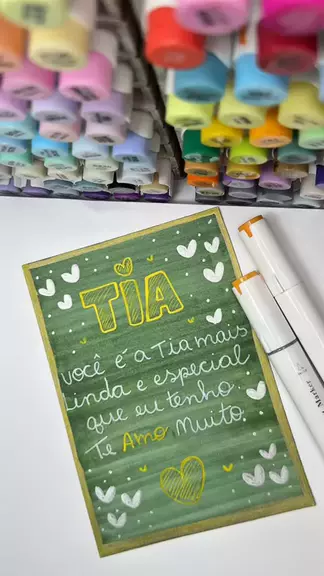 TIA
você é a Tia mais
Linda e especial
que eu tenho.
Te Amo Muito.
Marker